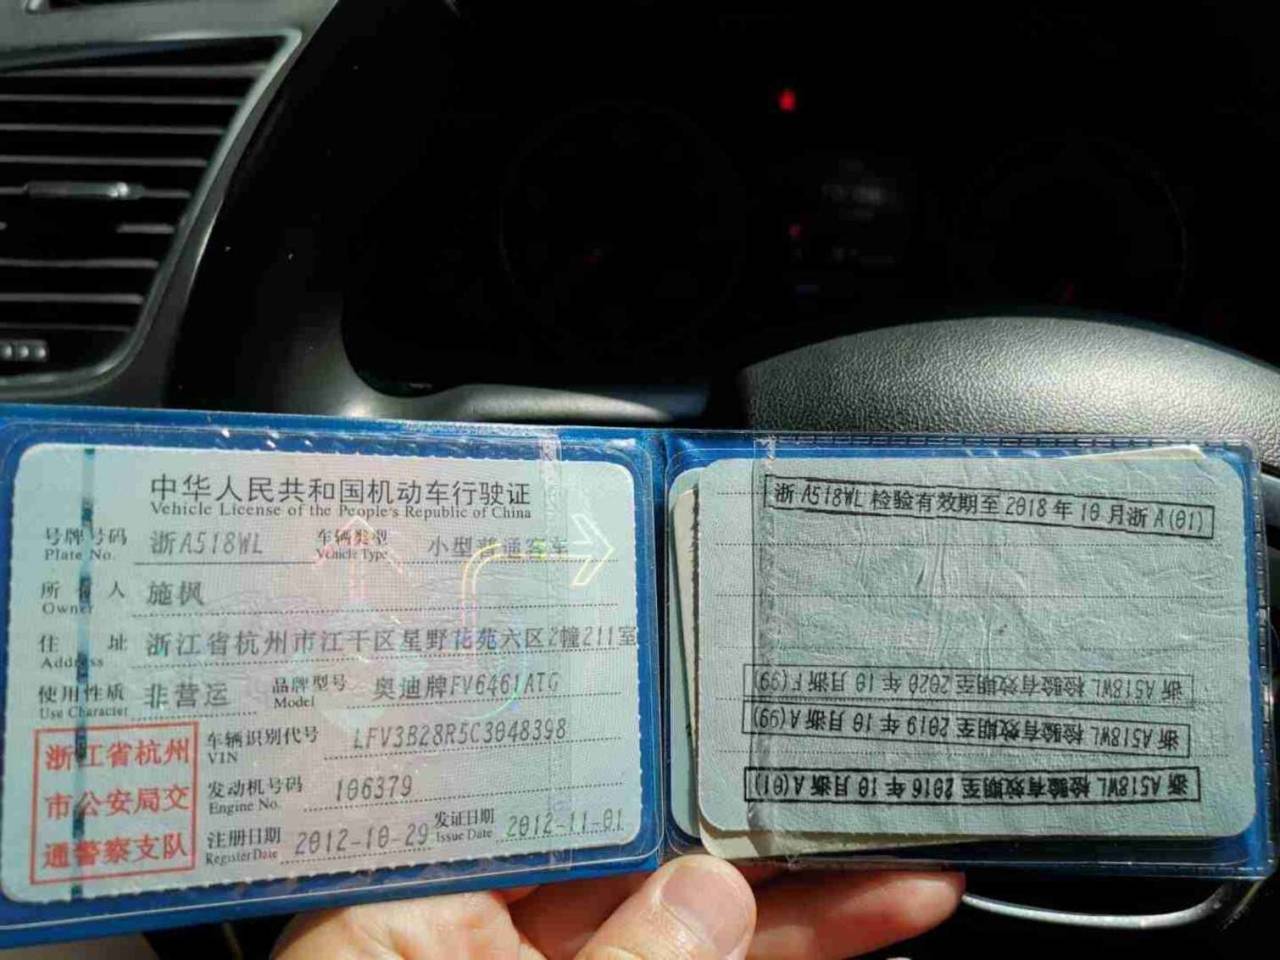 中华人民共和国机动车行驶证
Vehicle License of the People's Republic of China
号牌号码 浙A518WL 车辆类型 小型普通客车
Plate No. Vehicle Type
所有人 施枫
Owner
住址 浙江省杭州市江干区星野花苑六区2幢211室
Address
使用性质 非营运 品牌型号 奥迪牌FV6461ATG
Use Character Model
浙江省杭州
市公安局交
通警察支队
车辆识别代号 LFV3B28R5C3048398
VIN
发动机号码 106379
Engine No.
注册日期 2012-10-29 发证日期 2012-11-01
Register Date Issue Date
浙A518WL 检验有效期至2018年10月浙A(01)
浙A518WL 检验有效期至2020年10月浙F(99)
浙A518WL 检验有效期至2019年10月浙A(99)
浙A518WL 检验有效期至2016年10月浙A(01)